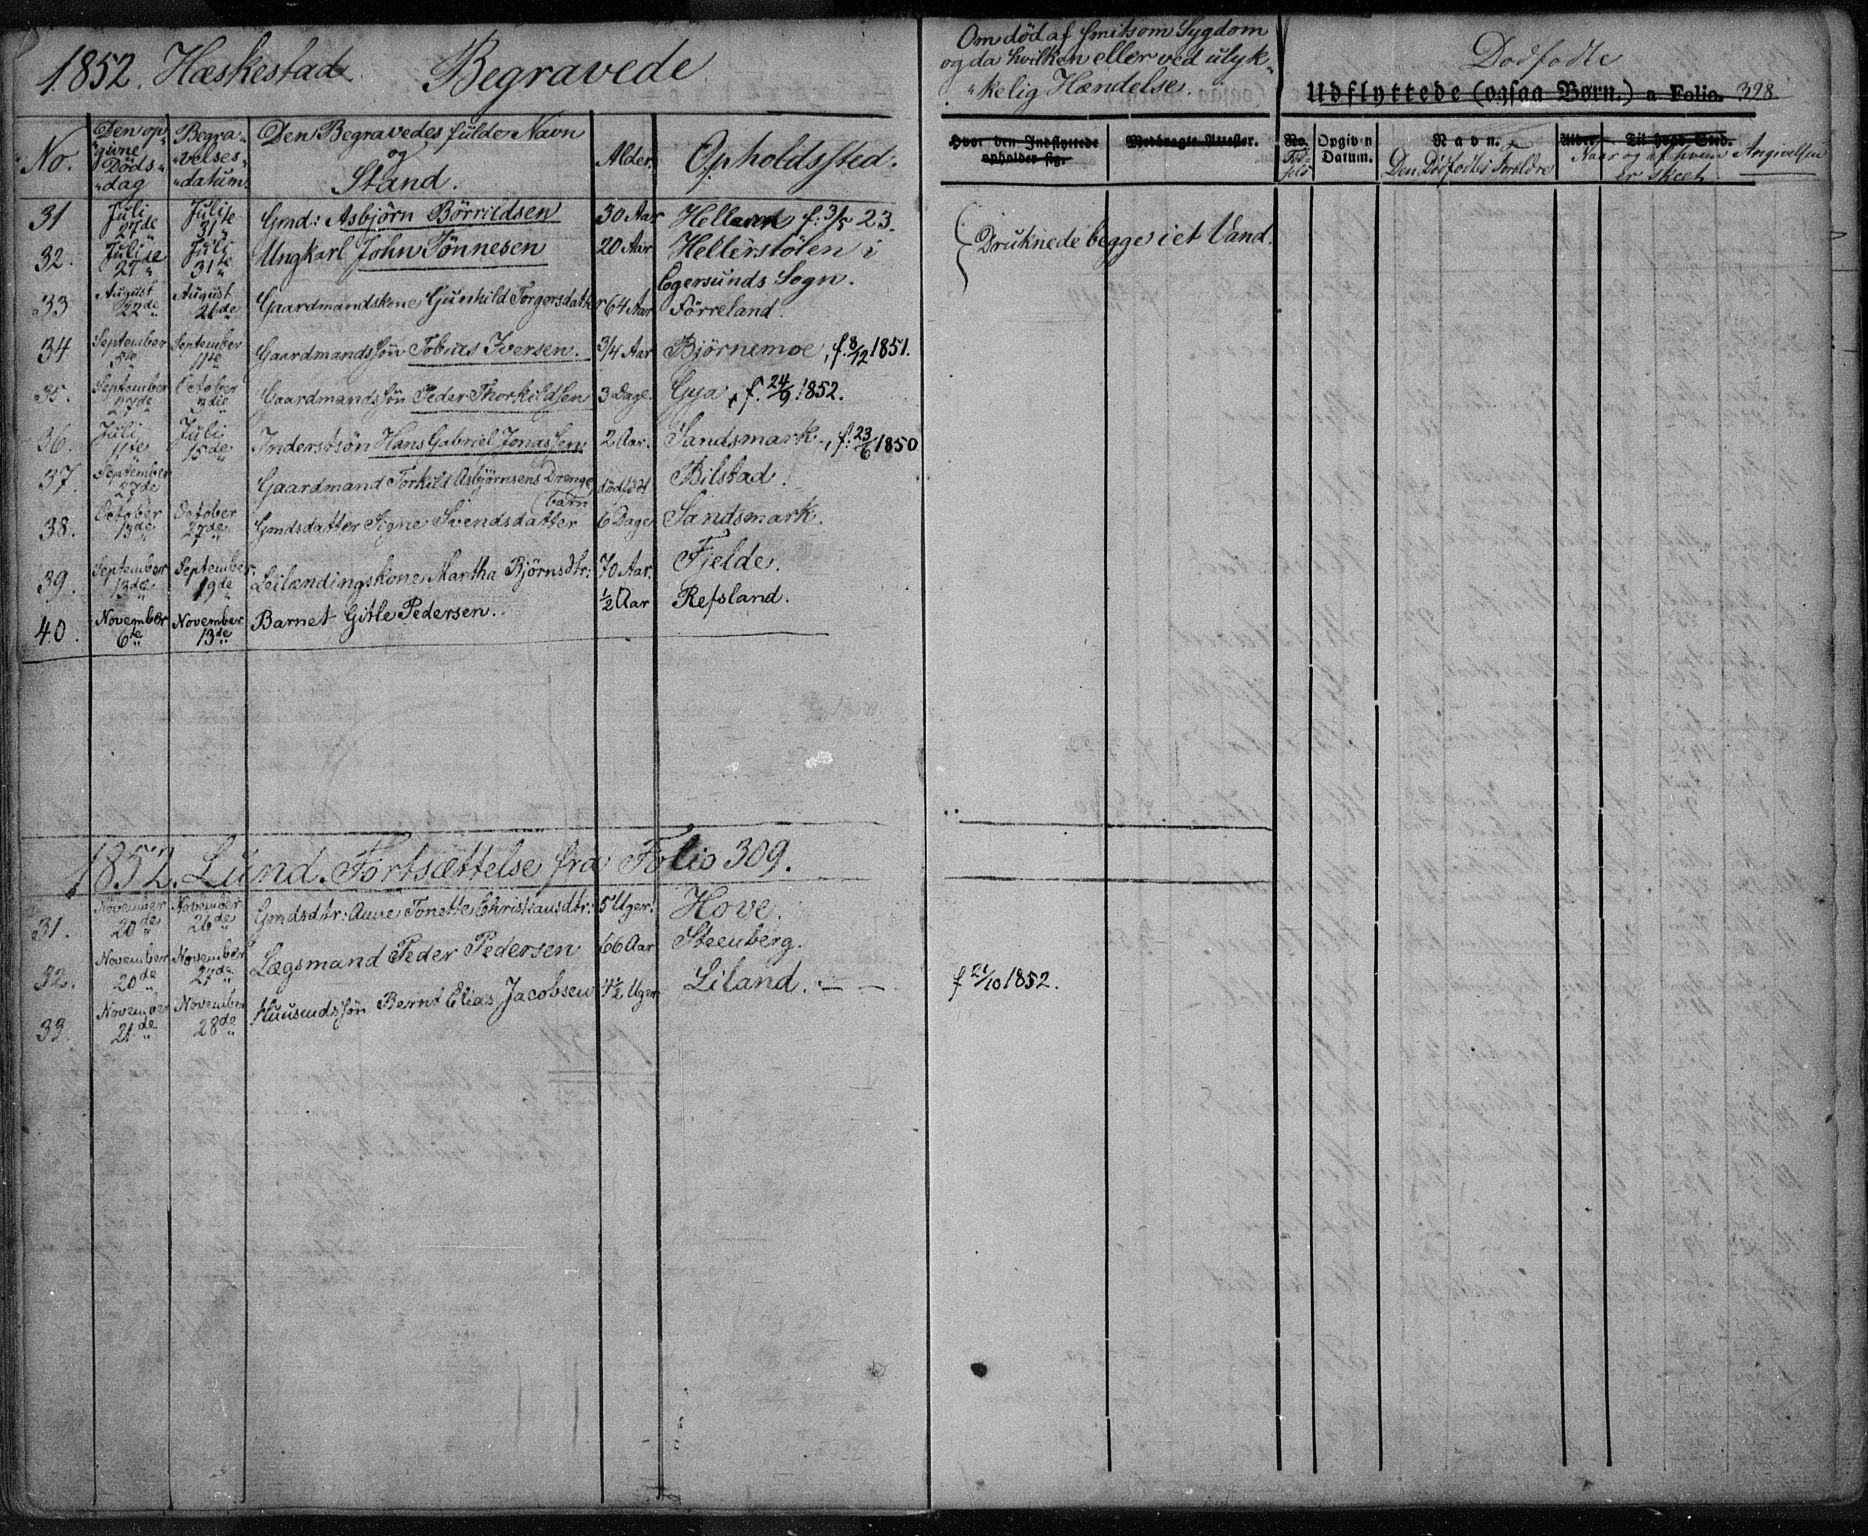 1852. Hæskestad Begravede
Om död af smitsom Sygdom
og da hvilken eller ved ulyk-
"kelig Hændelse.
Dödfødte
Udflyttede (ogsaa Børn.) a Folio. 398
No. Den op-givne Döds-dag Begra-velses-datum. Den Begravedes fulde Navn og Stand. Alder. Opholdssted.
Hvor den Indflyttede opholder sig. Medbragte Attester. No. Opgiven Datum. Navn. Den Dödfødtes Forældre Alder. Til hvad Sted. Naar og af hvem Angivelsen er skeet.
31 Juli 27de Juli 31te Gmd: Asbjörn Börrildsen 30 Aar Helland f. 3/5 23. Druknede begge i et Vand.
32. Juli 27de Juli 31te Ungkarl John Tönnesen 20 Aar Hellerstölen i
Eogersunds Sogn.
33 August 22de August 26de Gaardmandskone Gunhild Torgersdatter 64 Aar Förreland.
34 September 5te September 11te Gaardmandssön Tobias Iversen. 3/4 Aar Björnemoe, f. 8/12 1851.
35. September 27de October 3die Gaardmandssön Peder Thorkildsen 3 Dage Gya, f. 24/9 1852.
36. Juli 11te Juli 15de Inderstsön Hans Gabriel Jonassen 2 Aar. Sandsmark, f. 23/6 1850
37. September 27de Gaardmand Torkild Asbjörnsens Drenge barn dödfödt Bilstad.
38. October 13de October 27de Gmdsdatter Signe Svendsdatter 6 Dage Sandsmark.
39. September 13de September 19de Leilændingskone Martha Björnsdtr: 70 Aar. Fjelde.
40. November 6te November 13de Barnet Gitle Pedersen. 1/2 Aar Refsland.
1852. Lund. Fortsættelse fra Folio 309.
31. November 20de November 26de Gmdsdtr: Anne Tonette Christiansdtr: 5 Uger. Hove.
32. November 20de November 27de Lægsmand Peder Pedersen 66 Aar Steenberg.
33. November 21de November 28de Huusmdssön Bernt Elias Jacobsen 4 1/2 Uger Liland. — — f 21/10 1852.